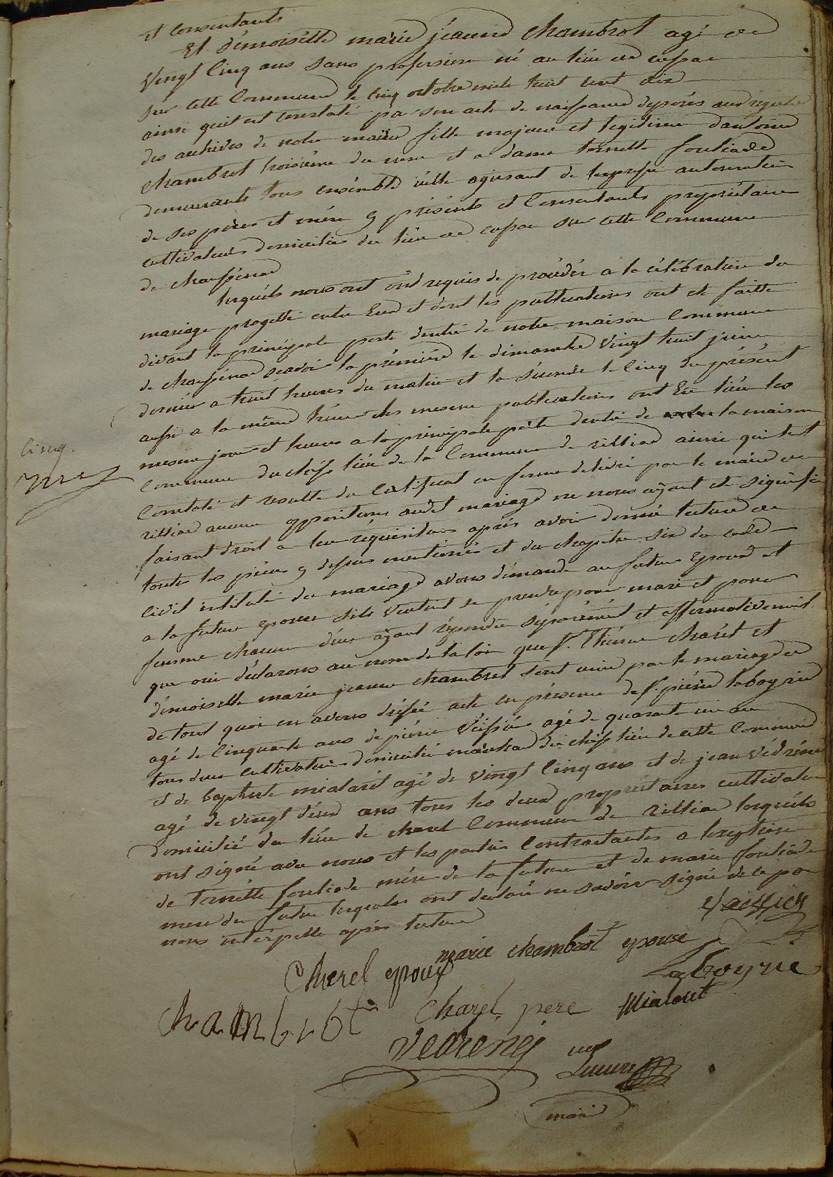 et consentants
Et démoiselle marie jeanne chambrot agé de
Vingt Cinq ans sans profession né au lieu de cussac
sur cette Commune le cinq octobre mile huit cent dix
ainsi quil est constaté par son acte de naissance déposés aux
des archives de notre mairie fille majeure et legitime dantoine
chambrot troisième du nom et a dame toinette fouliade
demeurants tous ensemble icelle agissant de lexprese autorisation
de ses père et mére y présents et Consentants propriétaire
cultivateurs domiciliés du lieu de cussac sur cette Commune
de chaussenac
lesquels nous ont ont requis de procéder à la célébration du
mariage progetté entre Eux et dont les publications ont été faitte
devant la principale porte dentré de notre maison Commune
de chaussenac scavoir la première le dimanche vingt huit juin
dernier a huit heures du matin et la séconde le Cinq du présent
aussi a la même heure les mesme publications ont Eu lieu les
mesme jour et heures a la principale porte dentré de la maison
Commune du chef lieu de la Commune de rilliac ainsi quil est
Constaté et resulte du Certificat en forme délivré par le maire de
rilliac aucune oppositions audit mariage ne nous ayant été signifiée
faisant droit a leur réquisitions après avoir donné lecture de
toutes les pièces y dessus mentionnés et du chapitre six du code
Civil intitulé du mariage avons démandé au future Epoux et
a la future epouse sils veulent se prendre pour mari et pour
femme chacun deux ayant répondu séparément et affirmativement
que oui déclarons au nom de la loi que Sr Etienne charel et
démoiselle marie jeanne chambrot sont unis par le mariage
de tout quoi en avons dréssé acte en présence de Sr pierre laboyrie
agé de cinquante ans de pierre Veissier agé de quarante un an
tous deux cultivateurs domicilié du chef lieu de cette Commune
et de baptiste mialaret agé de vingt Cinq ans et de jean védrenne
agé de vingt deux ans tous les deux propriétaires cultivateurs
domicilié du lieu de charel Commune de rilliac lesquels
ont signé avec nous et les parties Contractantes a lexeption
de toinétte fouliade mére de la future et de marie fouliade
mere du futur lesquelles ont déclaré ne savoir signé de ce par
nous interpellé après lecture
Cinq.
Vaissier
marie chambrot epouse
Charel epoux
Laboyrie
Chambrot
Charel pere
Mialaret
Vedrenne
maire